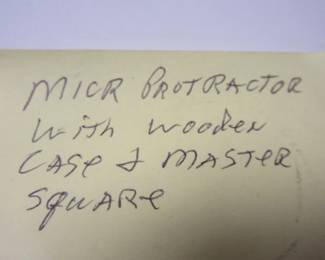 MICR PROTRACTOR
With Wooden
CASE & MASTER
SQUARE